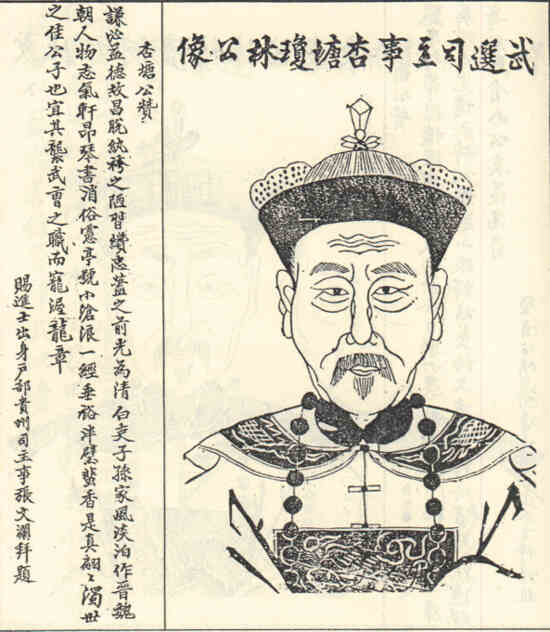 武選司主事杏塘瓊林公像
杏塘公贊
謙必益德故昌脫紈袴之陋習纘忠藎之前光為清白吏子孫家風淡泊作晉魏
朝人物志氣軒昂琴書消俗慮亭號小滄浪一經垂裕泮壁蜚香是真翩〻濁世
之佳公子也宜其襲武曹之職而寵渥龍章
賜進士出身戶部貴州司主事張文瀾拜題